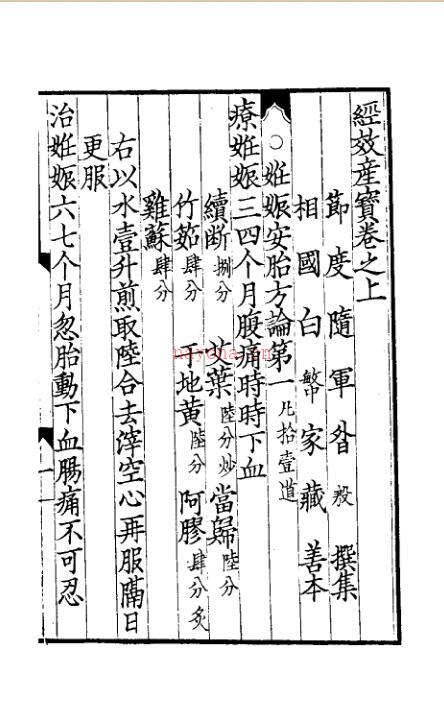 經效產寳卷之上
節度隨軍昝殷撰集
相國白敏中家藏善本
○姙娠安胎方論第一凡拾壹道
療姙娠三四个月腹痛時時下血
續断捌分 艾葉陸分炒 當歸陸分
竹茹肆分 干地黄陸分 阿膠肆分炙
雞蘇肆分
右以水壹升煎取陸合去滓空心再服隔日
更服
治姙娠六七个月忽胎動下血腸痛不可忍
一